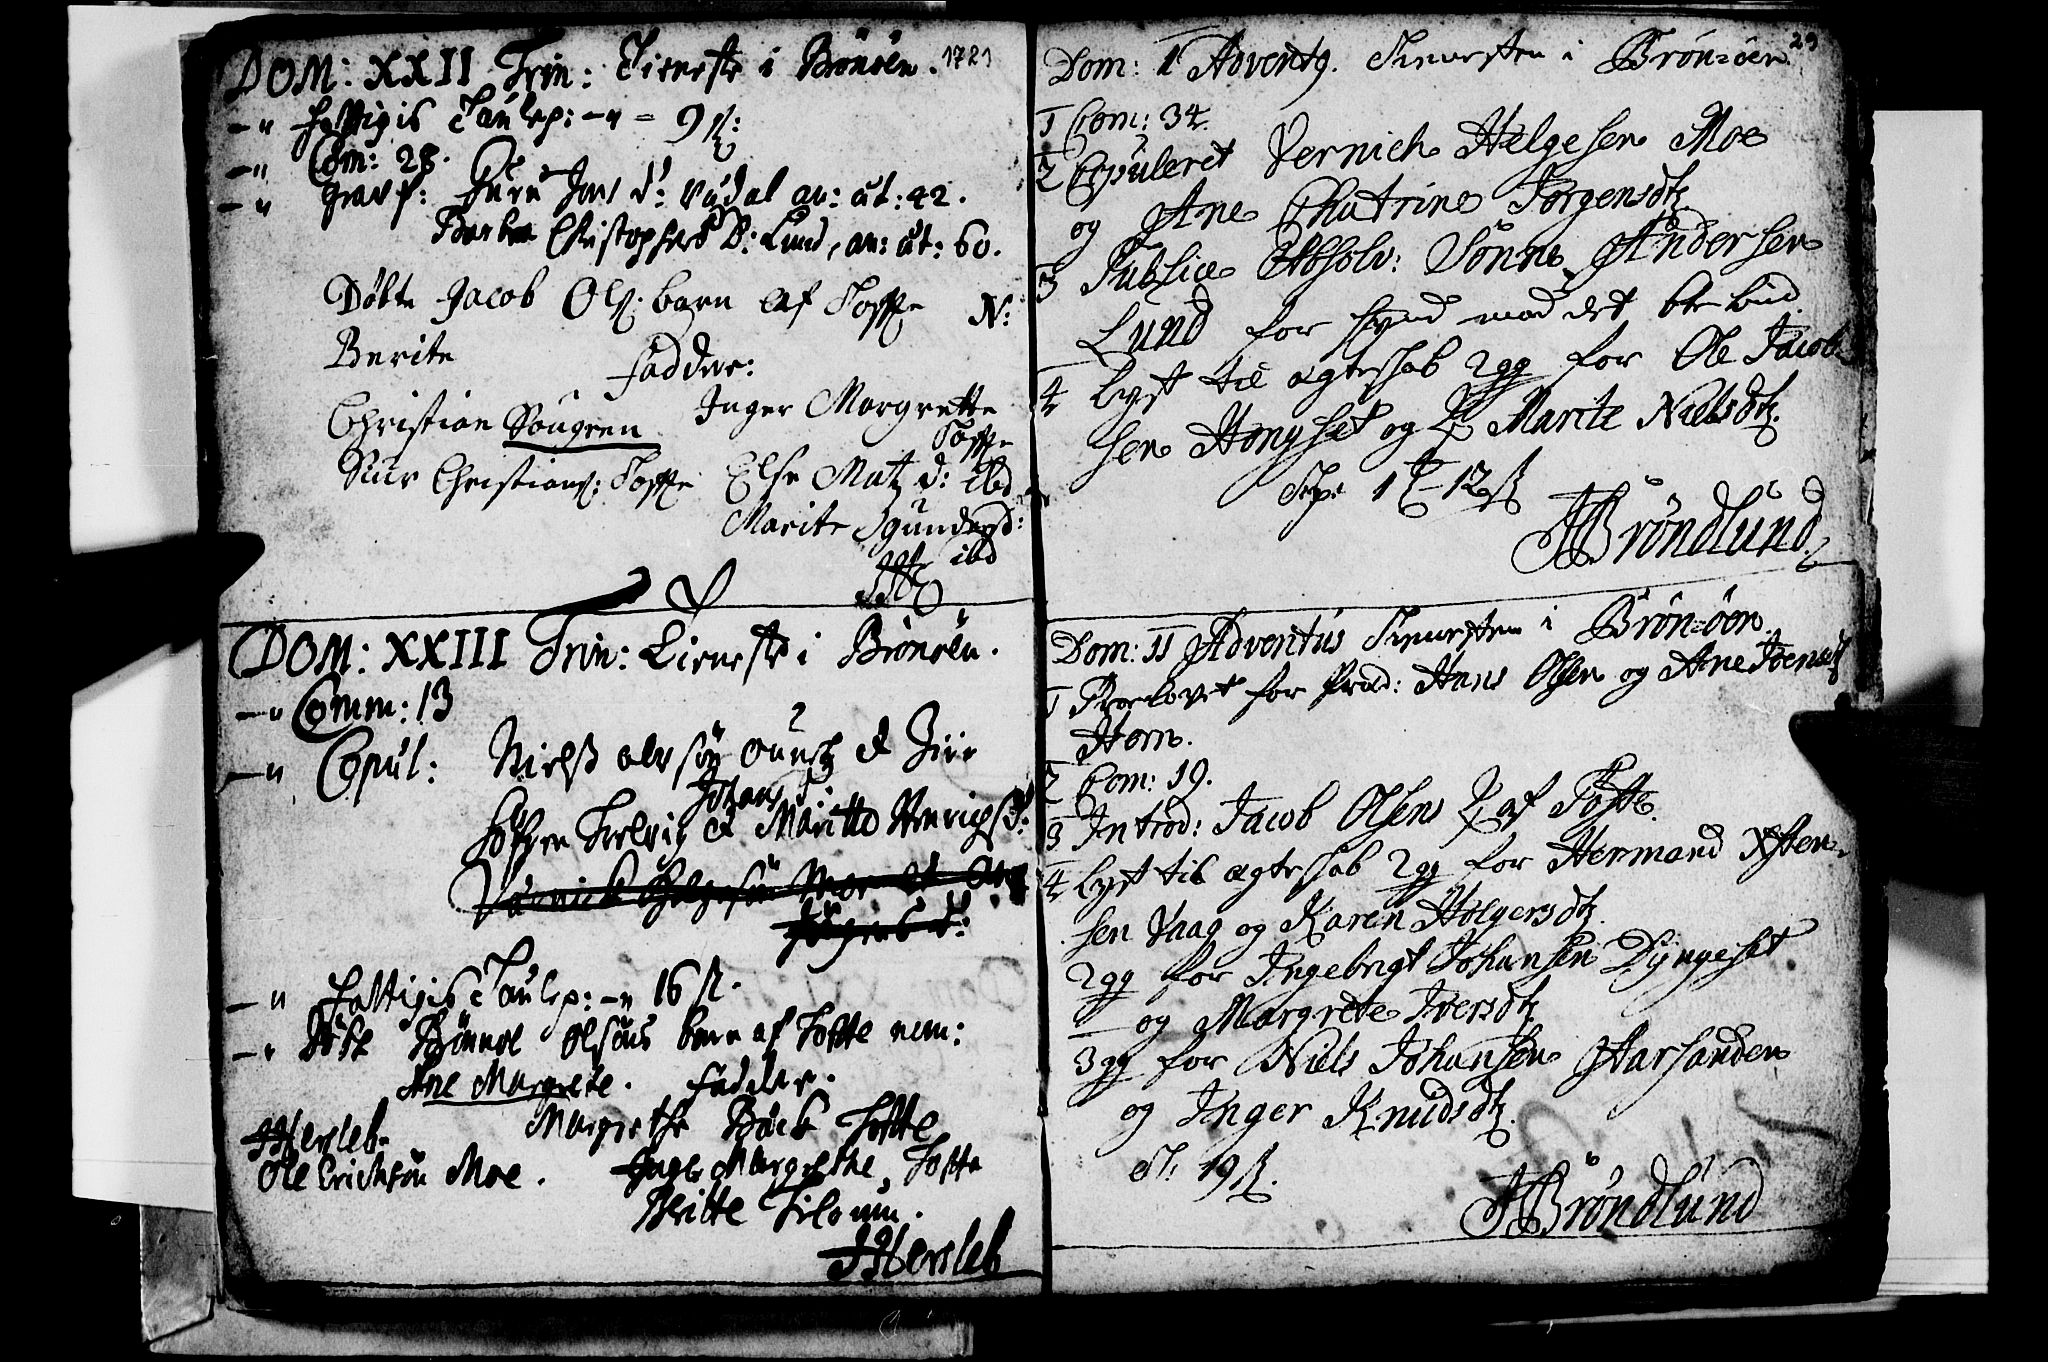 DOM: XXII Trin: Tieneste i Brönöen. 1721
-" fattigis Taulep: -" = 9 ß:
-" Com: 28.
-" Grav f: Jens d: an: æt: 42.
Barbra Christophers D: Lund, an: æt: 60.
Döbte Jacob Ols: barn af Tofte N:
Berite
Faddere:
Christian Sougren Inger Margrette
Tofte
Siur Christians: Tofte Else Matz d: ibd
Marite Gundersd:
ibd
DOM: XXIII Trin: Tieneste i Brönöen.
-" Comm: 13
-" Copul: Niels &
Johans
& Maritte d:
Varnick Helgesön Moe & Ane
Jörgens d:
-" fattigis Taulep: -" 16 ß.
-" Döbt Brönnel Olsöns barn af Tofte nom:
Ane Margrete. Fadder.
JHersleb. Margrethe Bäck Tofte
Ole Erichsön Moe. Inger Margrethe Tofte
Britte Tilrum.
JHersleb
29
Dom: 1 Advents. Tienesten i Brön=öen
1 Com: 34.
2 Copuleret Vernich Helgesen Moe
og Ane Chatrine Jörgensdtr
3 Publice Absolv: Sönne Andersen
Lund for Synd mod det 6te bud
4 Lyst til ægteskab 2gg for Ole Jacob-
sen Hongset og Marite Nielsdtr.
12 ß
JBröndlund
Dom: 11 Adventus Tienesten i Brön=öen.
1 Troelovet for Præd: Hans Olsen og Ane Iversdtr
Horn.
2 Com: 19.
3 Introd: Jacob Olsens af Tofte.
4 Lyst til ægteskab 2gg for Hermand Xsten-
sen Vaag og Karen Holgersdtr.
2gg for Ingebrigt Johansen Dyngeset
og Margrete Iversdtr
3gg for Niels Johansen Aarsanden
og Inger Knudsdtr.
19 ß.
JBröndlund